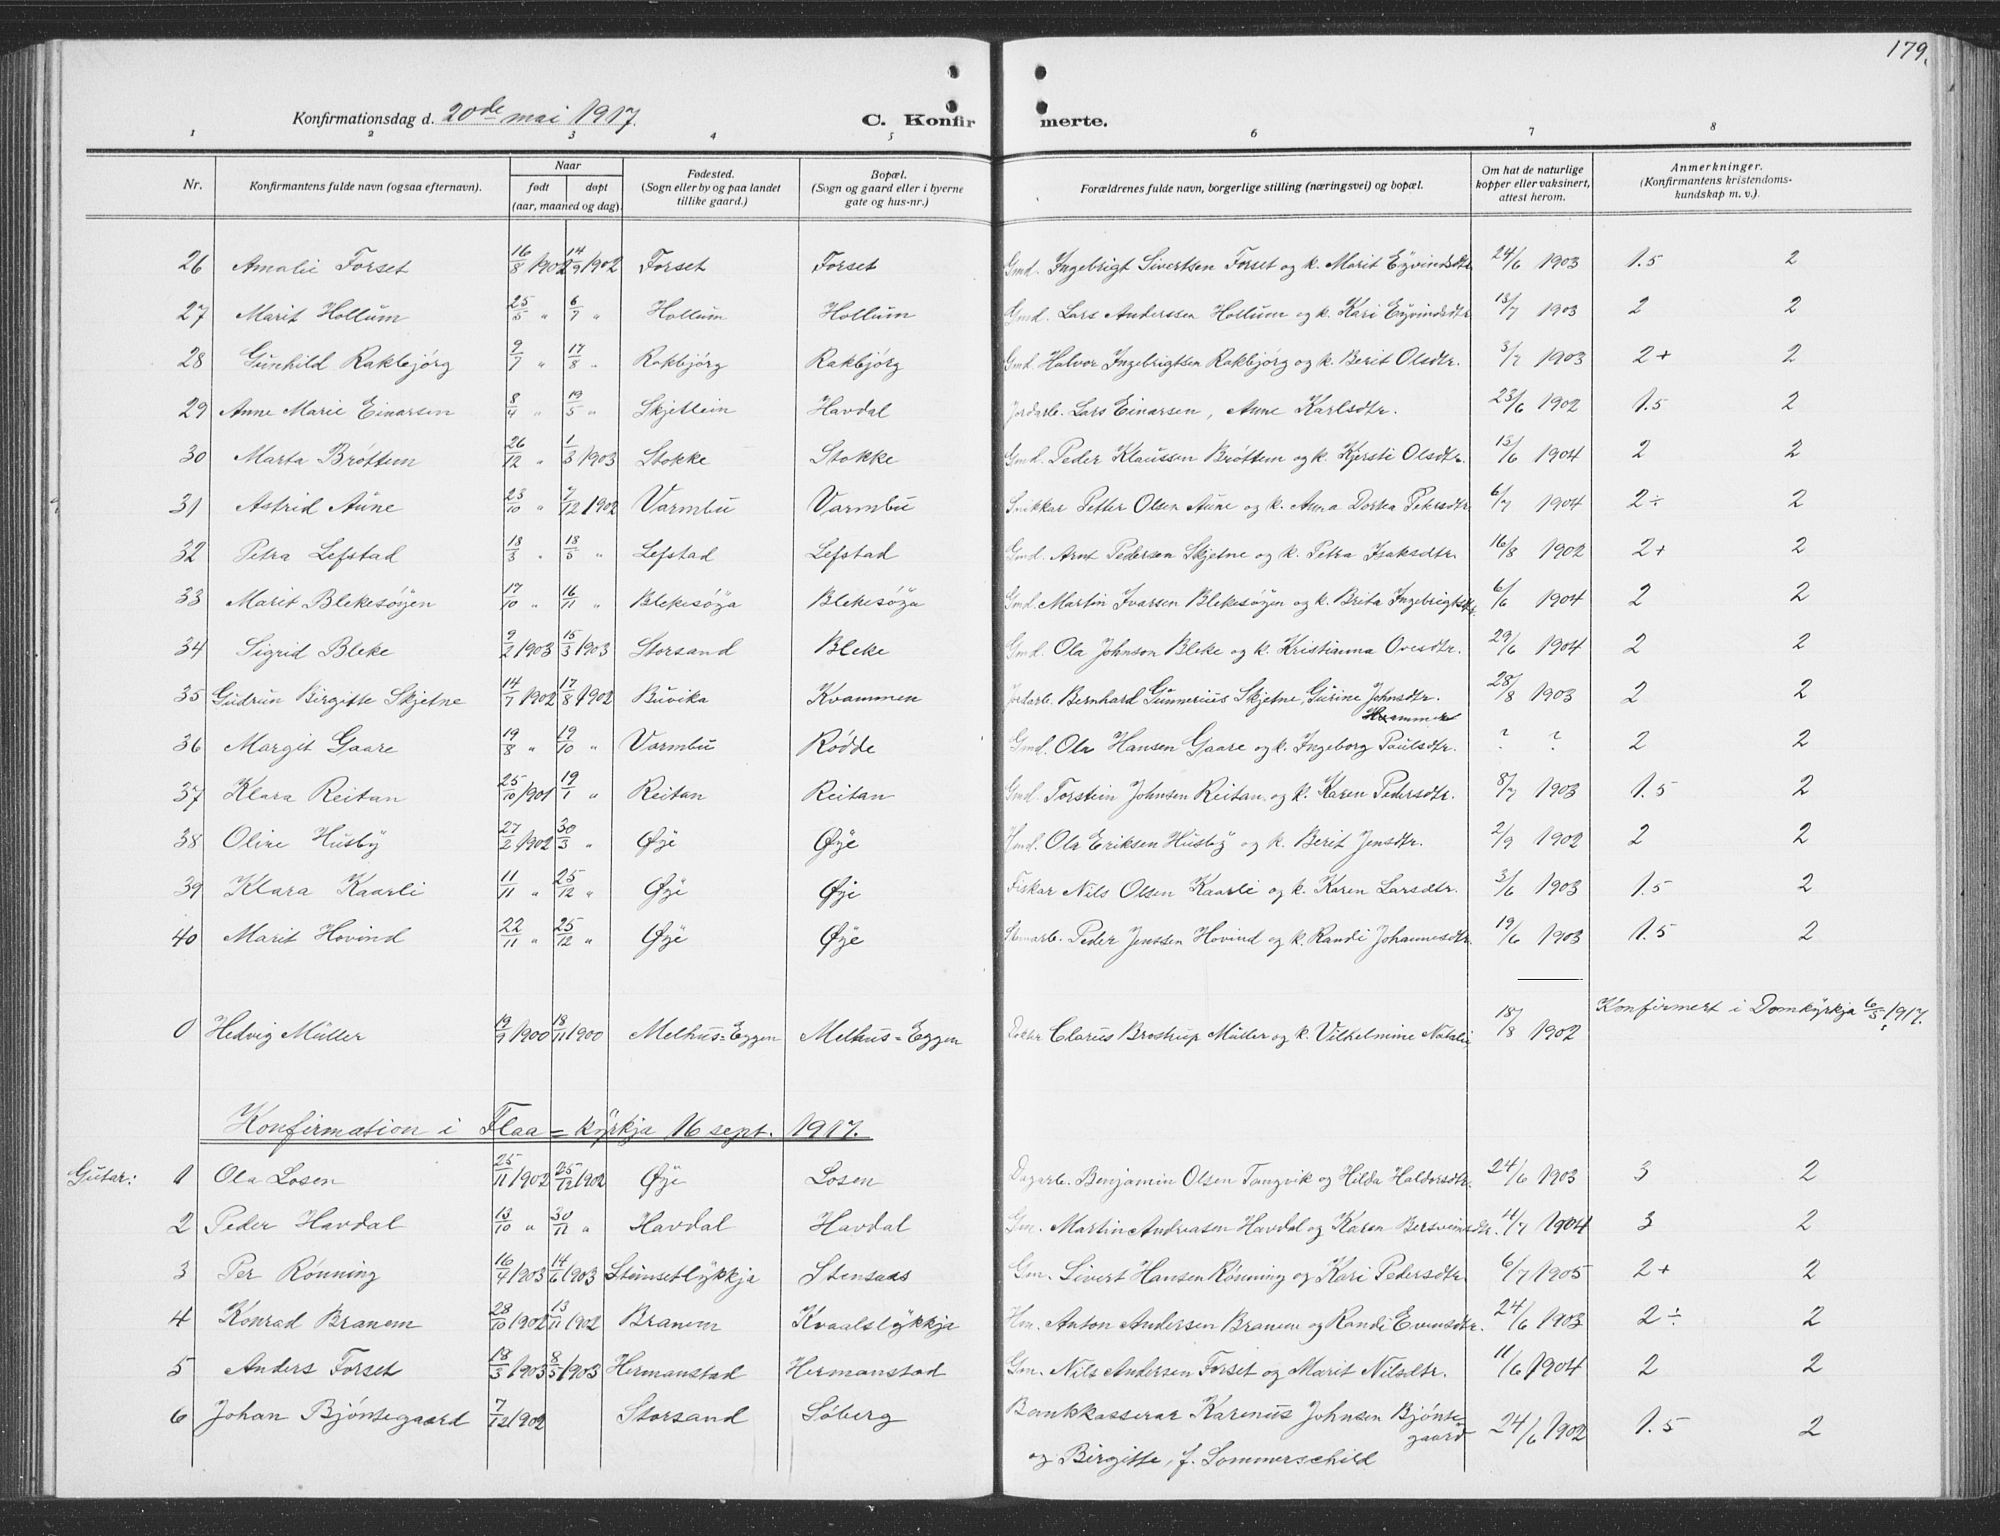 179.
Konfirmationsdag d. 20de mai 1917. C. Konfirmerte.
1 2 3 4 5 6 7 8
Nr. Konfirmantens fulde navn (ogsaa efternavn). Naar født døpt (aar, maaned og dag). Fødested. (Sogn eller by og paa landet tillike gaard.) Bopæl. (Sogn og gaard eller i byerne gate og hus-nr.) Forældrenes fulde navn, borgerlige stilling (næringsvei) og bopæl. Om hat de naturlige kopper eller vaksinert, attest herom. Anmerkninger. (Konfirmantens kristendomskundskap m. v.).
26 Amalie Forset 16/8 1902 14/9 1902 Forset Forset Gmd. Ingebrigt Sivertsen Forset og k. Marit Eyvindsdtr 24/6 1903 1.5 2
27 Marit Hollum 25/5 " 6/7 " Hollum Hollum Gmd. Lars Anderssen Hollum og k. Kari Eyvindsdtr 13/7 1903 2 2
28 Gunhild Rakbjørg 9/7 " 17/8 " Rakbjørg Rakbjørg Gmd. Halvor Ingebrigtsen Rakbjørg og k. Berit Olsdtr. 3/7 1903 2+ 2
29 Anne Marie Einarsen 8/4 " 19/5 " Skjetlein Havdal Jordarb. Lars Einarsen, Anne Karlsdtr. 23/6 1902 1.5 2
30 Marta Brøttem 26/12 " 1/3 1903 Stokke Stokke Gmd. Peder Klaussen Brøttem og k. Kjersti Olsdtr. 13/6 1904 2 2
31 Astrid Aune 23/10 " 7/12 1902 Varmbu Varmbu Snikkar Petter Olsen Aune og k. Anna Dortea Petersdtr 6/7 1904 2÷ 2
32 Petra Lefstad 13/3 " 18/5 " Lefstad Lefstad Gmd. Arnt Pedersen Skjetne og k. Petra Isaksdtr. 16/8 1902 2+ 2
33 Marit Blekesøyen 17/10 " 16/11 " Blekesøya Blekesøya Gmd. Martin Ivarsen Blekesøyen og k. Brita Ingebrigtsdtr. 6/6 1904 2 2
34 Sigrid Bleke 9/2 1903 15/3 1903 Storsand Bleke Gmd. Ola Johnson Bleke og k. Kristianna Ovesdtr. 29/6 1904 2 2
35 Gudrun Birgitte Skjetne 14/7 1902 17/8 1902 Buvika Kvammen Jordarb. Bernhard Gunnerius Skjetne, Gurine Johnsdtr. 28/8 1903 2 2
36 Margit Gaare 19/8 " 19/10 " Varmbu Rødde Gmd. Ola Hansen Gaare og k. Ingeborg Paulsdtr. ? ? 2 2
37 Klara Reitan 25/10 1901 19/1 " Reitan Reitan Gmd. Torstein Johnsen Reitan og k. Karen Pedersdtr. 8/7 1903 1.5 2
38 Oline Husby 27/2 1902 30/3 " Øye Øye Hmd. Ola Eriksen Husby og k. Berit Jensdtr. 2/9 1902 2 2
39 Klara Kaarli 11/11 " 25/12 " Øye Øye Fiskar Nils Olsen Kaarli og k. Karen Larsdtr. 3/6 1903 1.5 2
40 Marit Hovind 22/11 " 25/12 " Øye Øye Peder Jenssen Hovind og k. Randi Johannesdtr. 19/6 1903 1.5 2
0 Hedvig Müller 19/9 1900 18/11 1900 Melhus=Eggen Melhus=Eggen Doktor Clarus Brostrup Müller og k. Vilhelmine Natalie 18/8 1902 Konfirmert i Domkyrkja 6/5 1917.
Konfirmation i Flaa=kyrkja 16 sept. 1917.
Gutar: 1 Ola Losen 25/11 1902 25/12 1902 Øye Losen Dagarb. Benjamin Olsen Tangvik og Hilda Haldorsdtr. 24/6 1903 3 2
2 Peder Havdal 13/10 " 30/11 " Havdal Havdal Gm. Martin Andreasen Havdal og Karen Bersveinsdtr. 11/7 1904 3 2
3 Per Rønning 16/4 1903 14/6 1903 Steinsetlykkja Stensaas Gm. Sivert Hansen Rønning og Kari Pedersdtr 6/7 1905 2+ 2
4 Konrad Branem 28/10 1902 13/11 1902 Branem Kvaalslykkja Hm. Anton Andersen Branem og Randi Evensdtr. 24/6 1903 2÷ 2
5 Anders Forset 18/3 1903 8/5 1903 Hermanstad Hermanstad Gm. Nils Andersen Forset og Marit Nilsdtr. 11/6 1904 2 2
6 Johan Bjøntegaard 7/12 1902 Storsand Søberg Bankkasserar Karenus Johnsen Bjøntegaard 24/6 1902 1.5 2
og Birgitte, f. Sommerschild